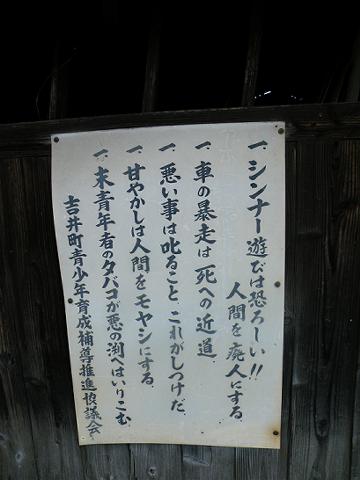 一、シンナー遊びは恐ろしい!!
人間を廃人にする、
一、車の暴走は死への近道、
一、悪い事は叱ること、これがしつけだ、
一、甘やかしは人間をモヤシにする、
一、末青年者のタバコが悪の渕へはいりこむ
吉井町青少年育成補導推進協議会